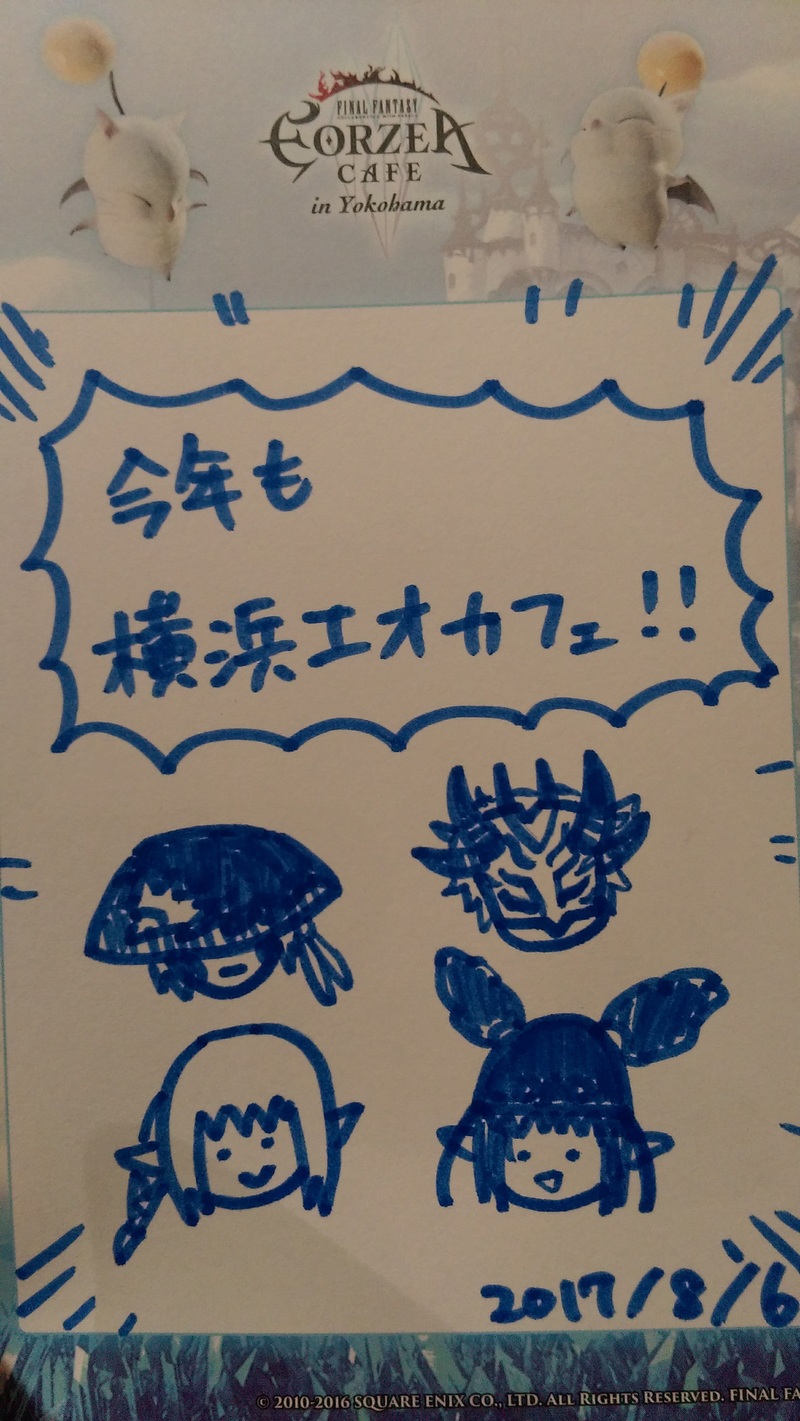 FINAL FANTASY
EORZEA
CAFE
in Yokohama
今年も
横浜エオカフェ!!
2017/8/6
© 2010-2016 SQUARE ENIX CO., LTD. ALL RIGHTS RESERVED. FINAL FA